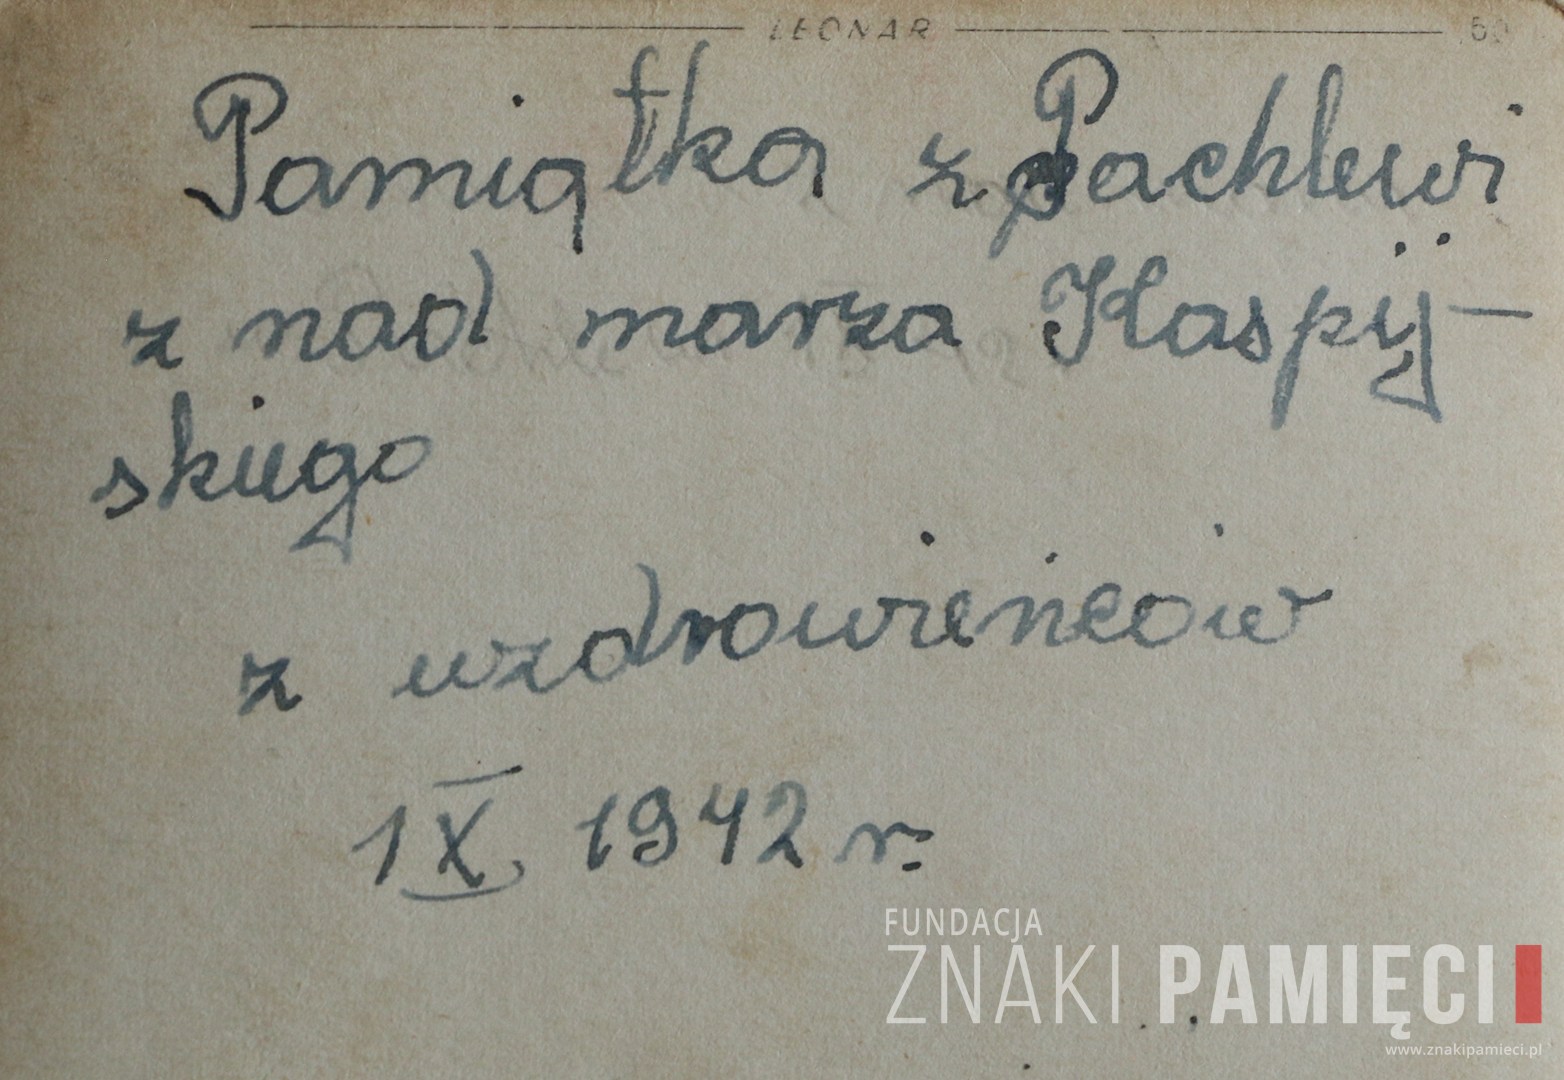 LEONAR
Pamiątka z Pachlewi
z nad morza Kaspij-
skiego
z uzdrowieńców
1 X 1942 r.
FUNDACJA
ZNAKI PAMIĘCI
www.znakipamieci.pl